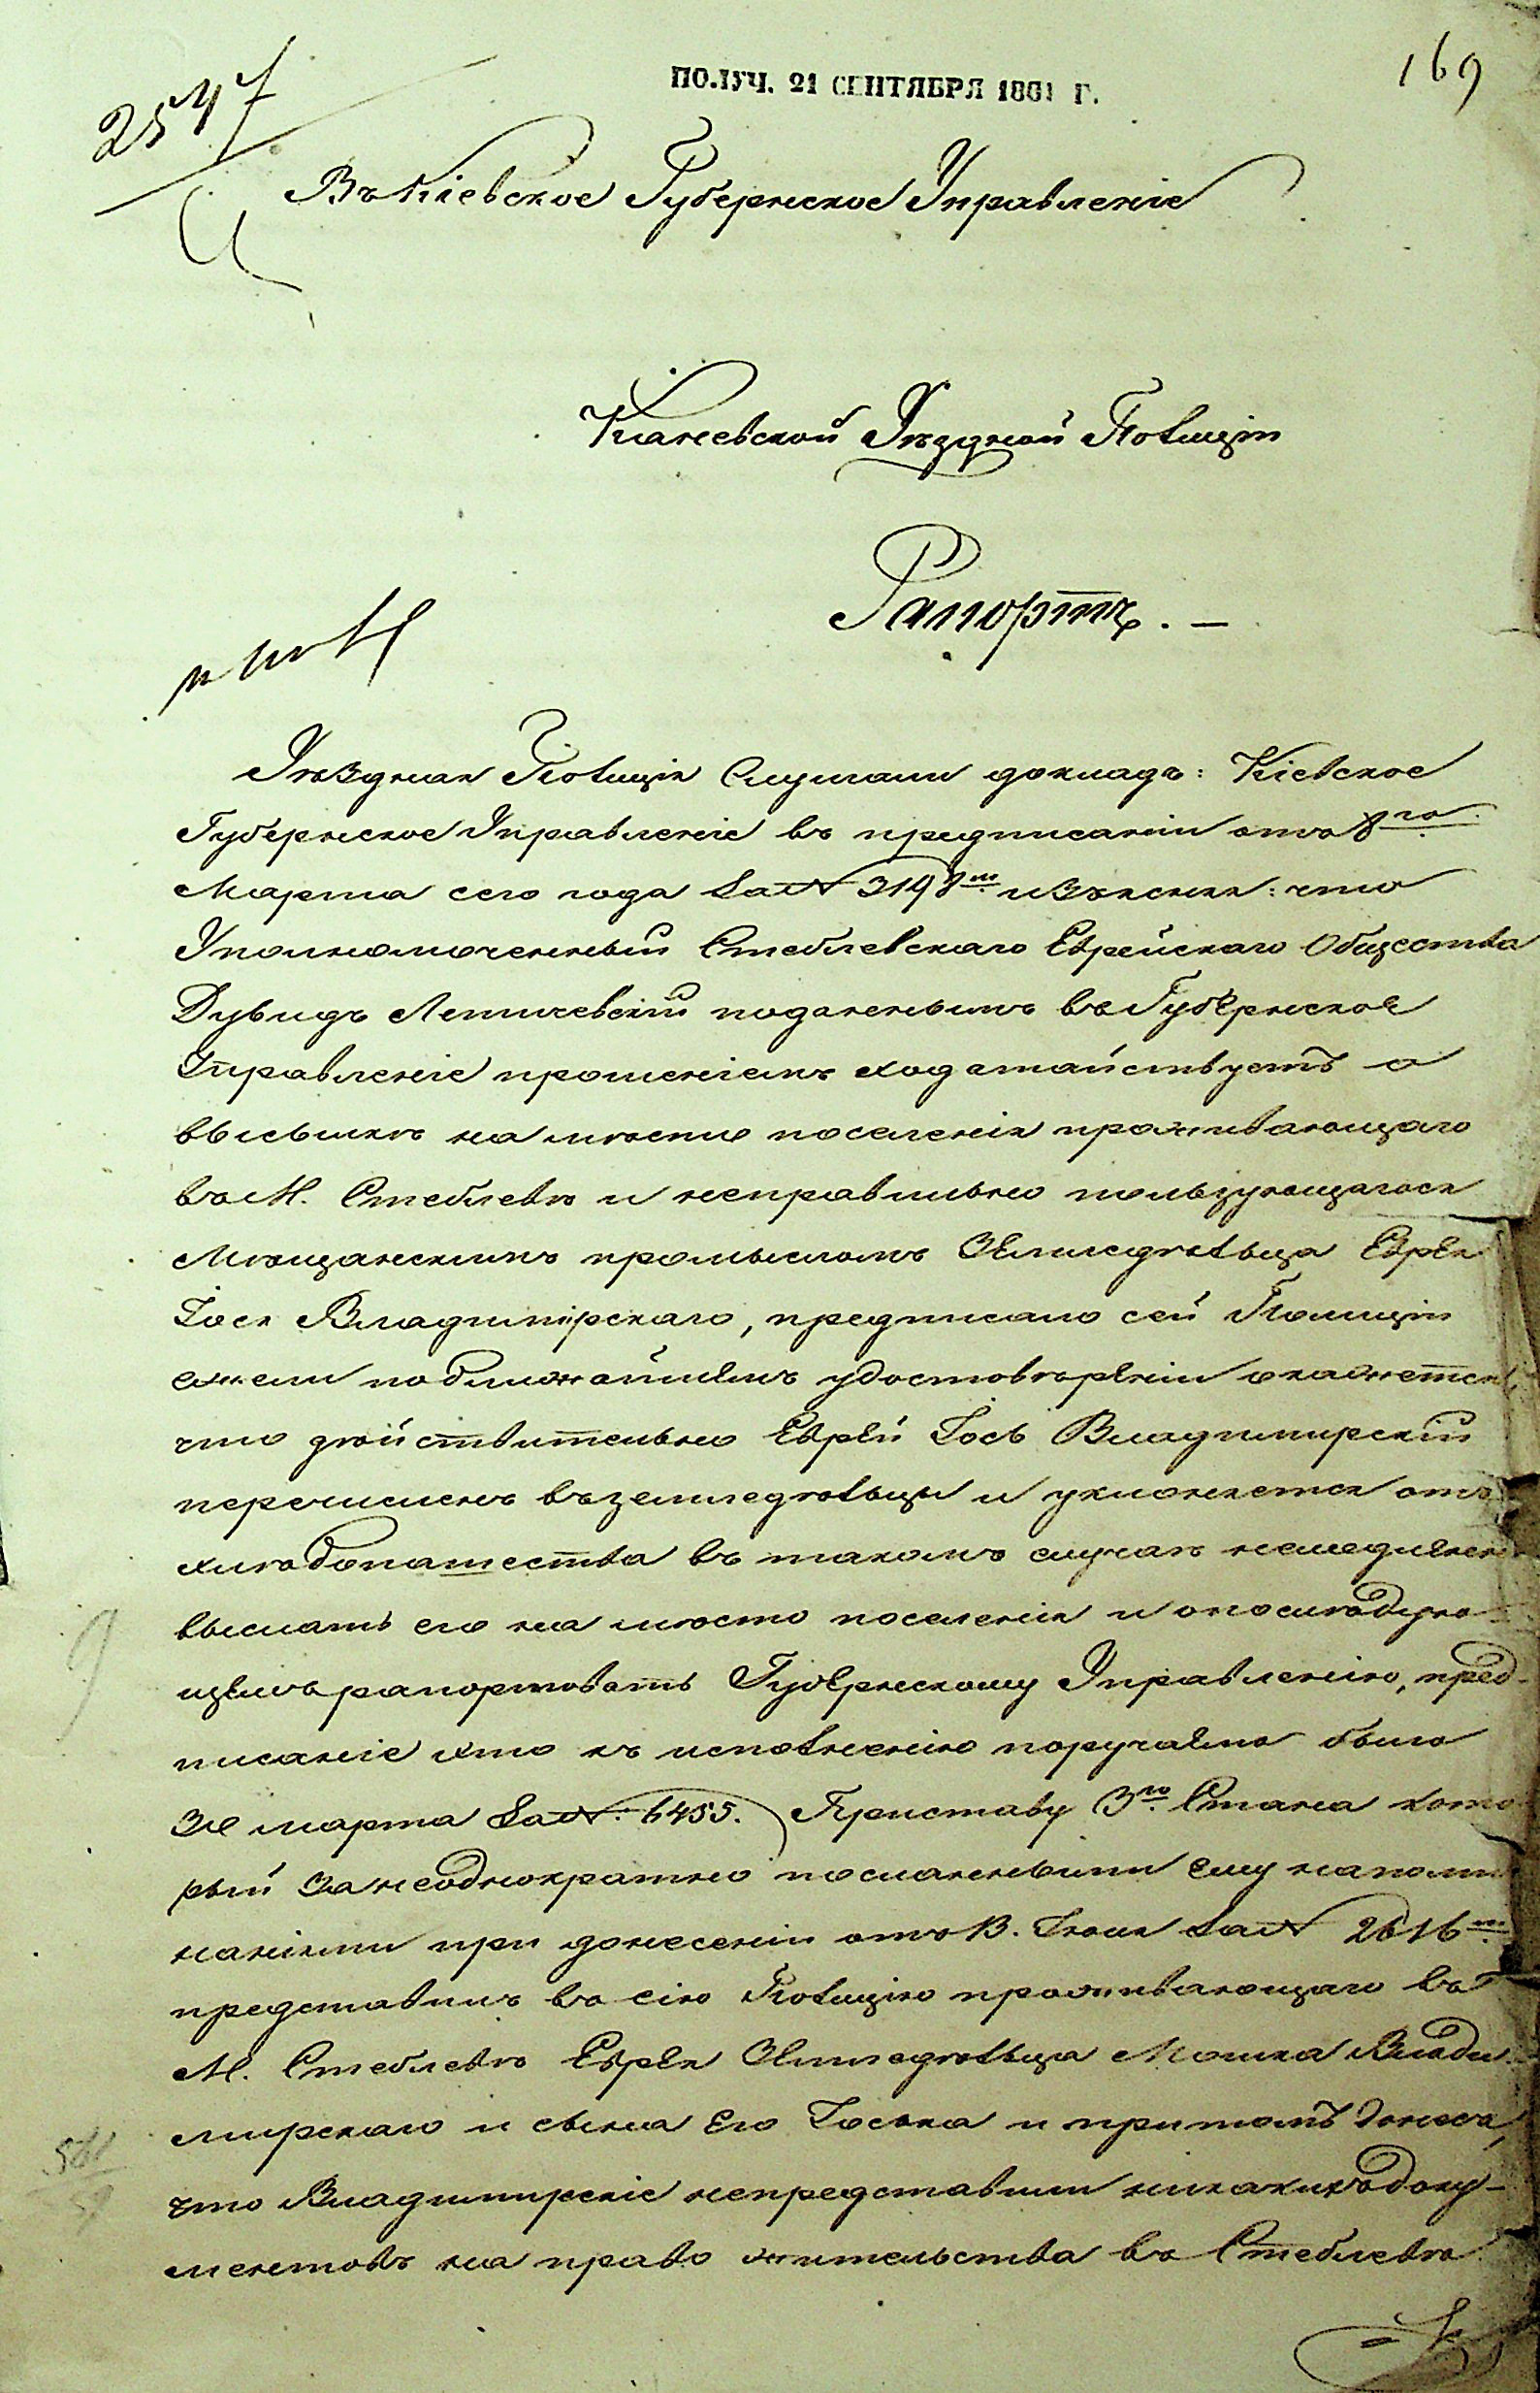 ПОЛУЧ. 21 СЕНТЯБРЯ 1861 Г.
169
2547
Въ Кіевское Губернское Управленіе
Каневской Уѣздной Полиціи
Рапортъ. —
Уѣздная Полиція Слушали докладъ: Кіевское
Губернское Управленіе въ предписаніи отъ 8го
Марта сего года за № 3198м изъясняя: что
Уполномоченный Стеблевскаго Еврейскаго Общества
Дувидъ Летичевскій поданнымъ въ Губернское
Управленіе прошеніемъ ходатайствуетъ о
высылкѣ на мѣсто поселенія проживающаго
въ М. Стеблевѣ и неправильно пользующагося
Мѣщанскимъ промысломъ Земледѣльца Еврея
Іося Владимірскаго, предписало сей Полиціи
ежели по ближайшемъ удостовѣреніи окажется,
что дѣйствительно Еврей Іось Владимирскій
перечисленъ въ земледѣльцы и уклоняется отъ
хлѣбопашества въ такомъ случаѣ немедленно
выслать его на мѣсто поселенія и о послѣдую-
щемъ рапортовать Губернскому Управленію, пред-
писаніе это къ исполненію поручаемо было
марта за №. 6455. Приставу 3го Стана кото
рый за неоднократно посланными ему напоми
наніями при донесеніи отъ 13. Іюля за № 2616м
представилъ въ сію Полицію проживающаго въ
М. Стеблевѣ Еврея Земледѣльца Мошка Влади
мирскаго и сына Его Іоська и притомъ донесъ,
что Владимирскіе непредставили никакихъ доку-
ментовъ на право жительства въ Стеблевѣ